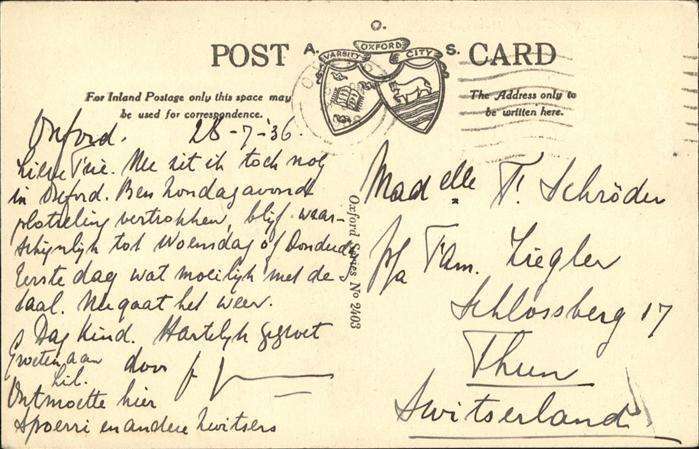 O.
POST A. S. CARD
VARSITY OXFORD CITY
For Inland Postage only this space may
be used for correspondence.
The Address only to
be written here.
Oxford. 28-7-'36.
Lieve Feie. Nu zit ik toch nog
in Oxford. Ben Zondagavond
plotseling vertrokken, blijf waar-
schijnlijk tot Woensdag of Donderdag
Eerste dag wat moeilijk met de
taal. Nu gaat het weer.
Dag kind. Hartelijk gegroet
Groeten aan door
Hil.
Ontmoette hier
Spoerri en andere Zwitsers
Oxford Series No 2403
Mad elle F. Schröder
p/a Fam. Ziegler
Schlossberg 17
Thun
Switserland